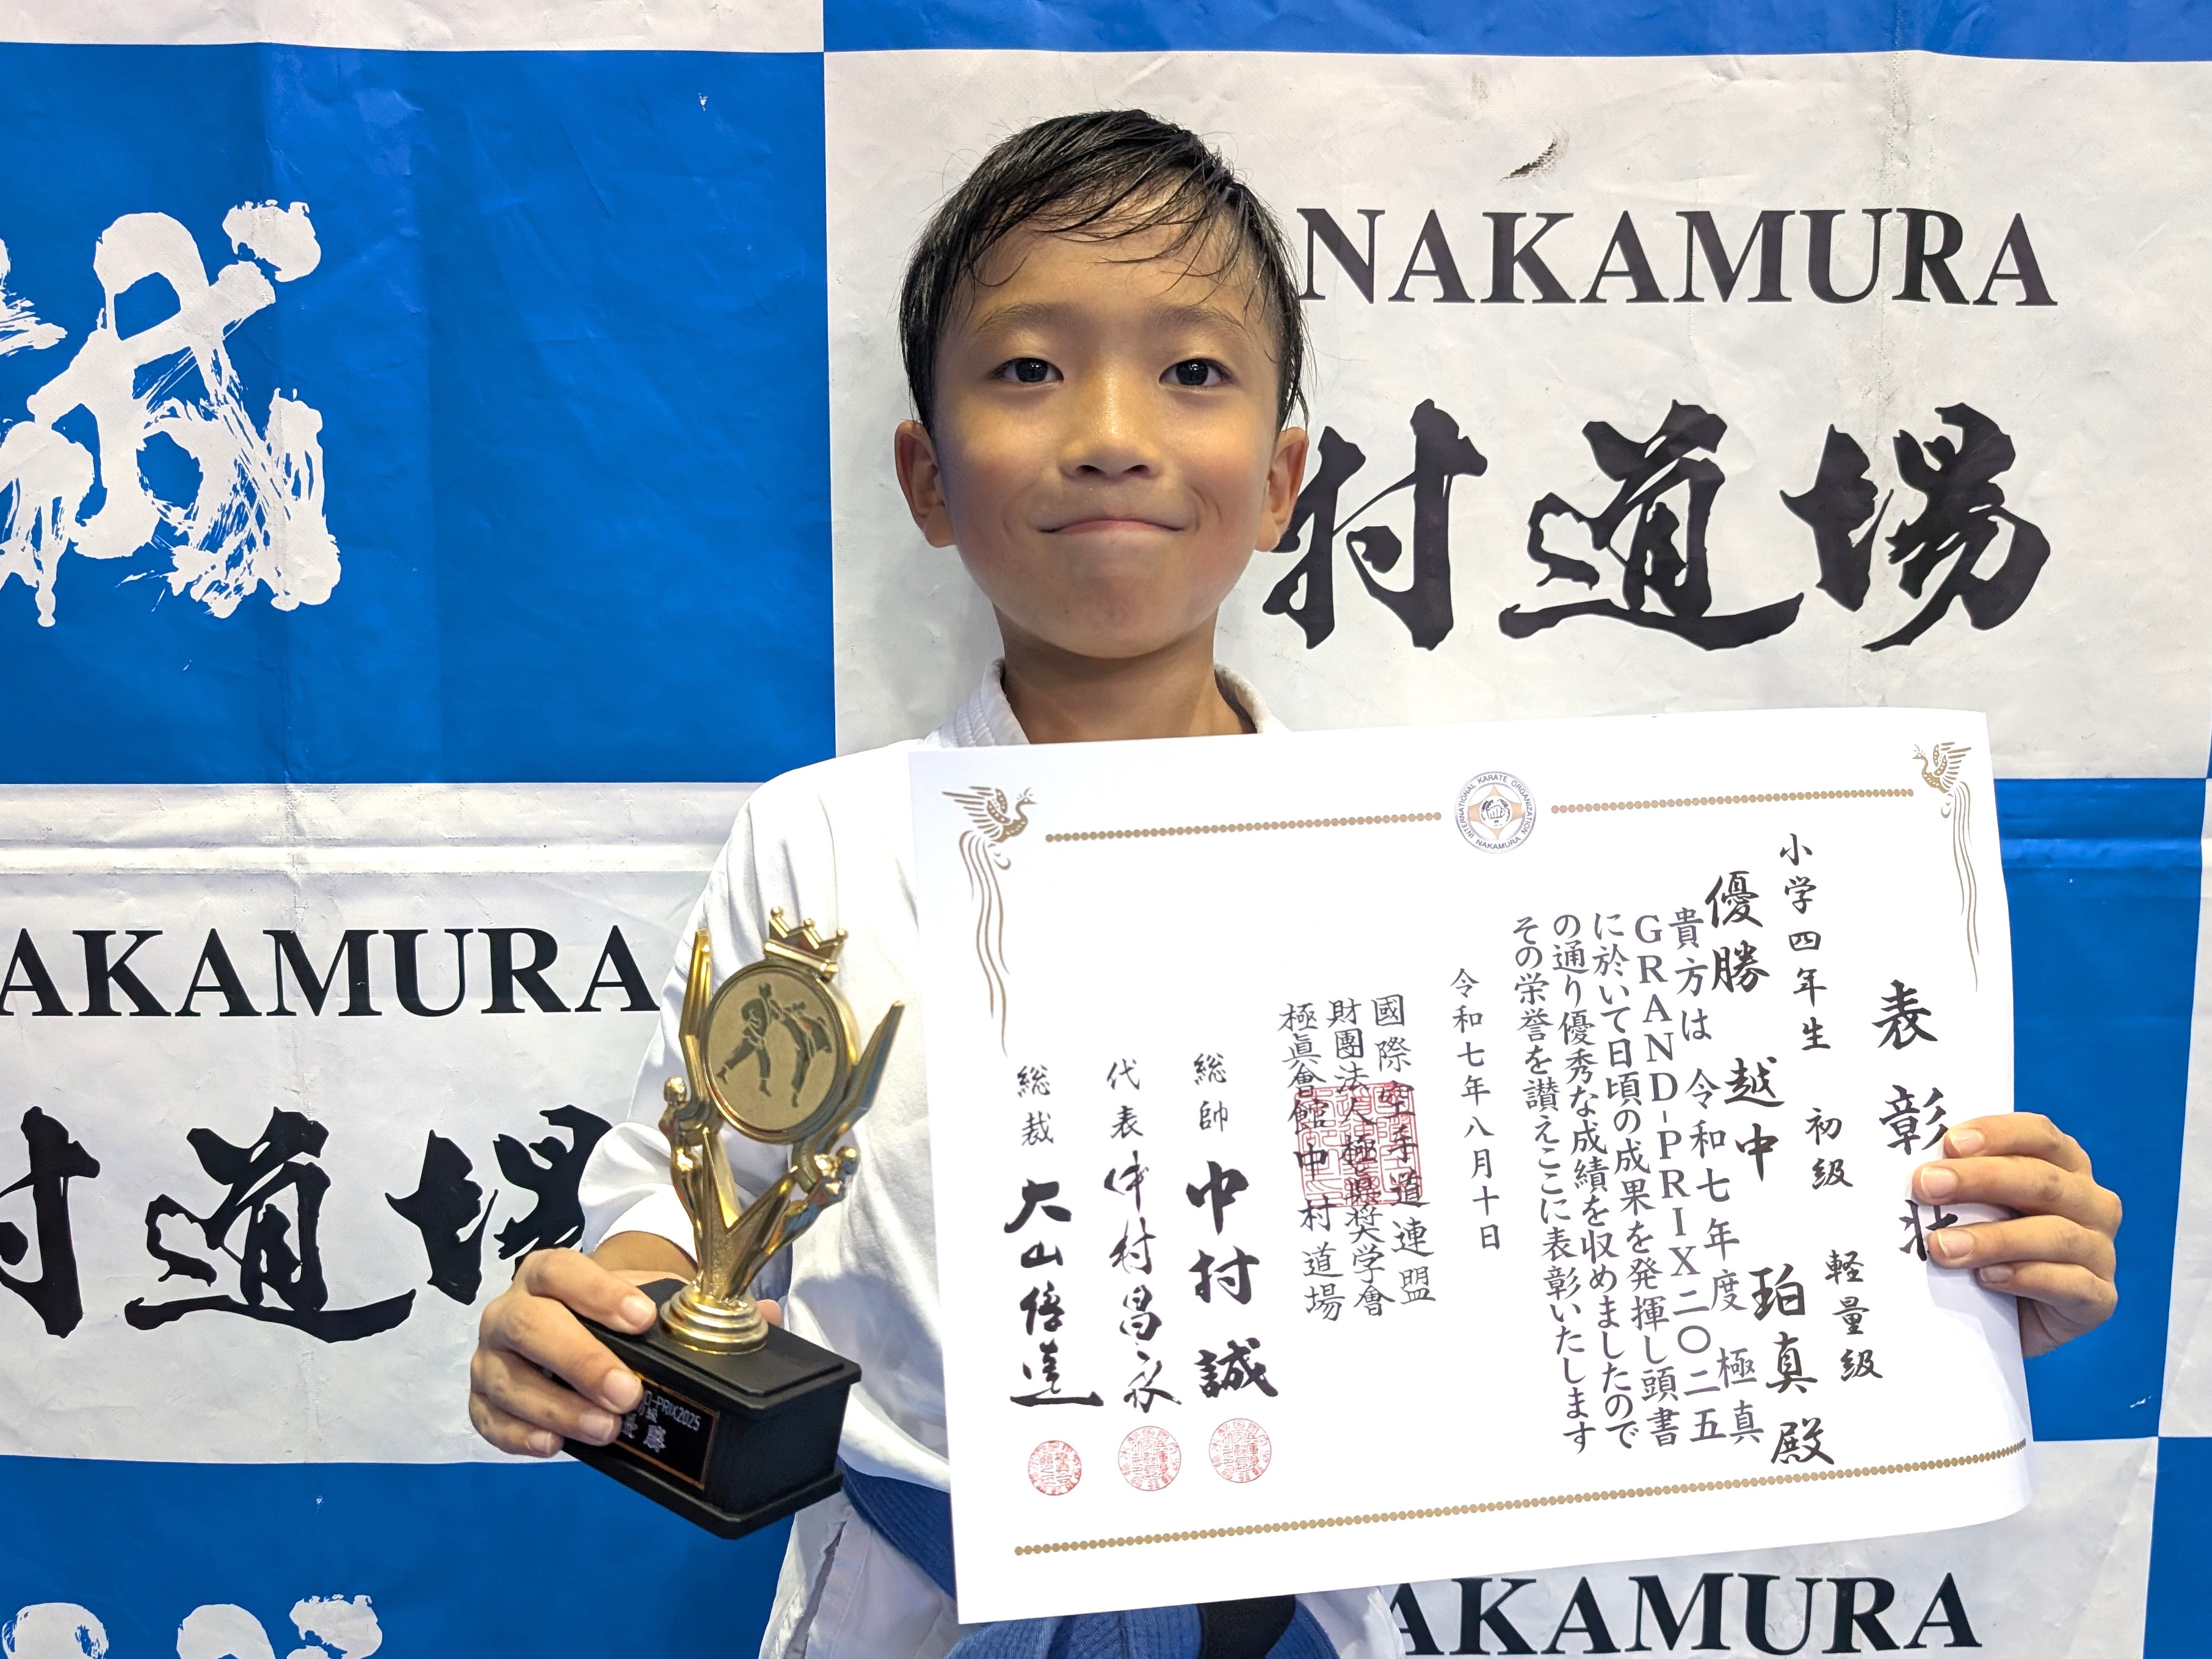 誠
NAKAMURA
村道場
AKAMURA
村道場
INTERNATIONAL KARATE ORGANIZATION
NAKAMURA
表彰状
小学四年生 初級 軽量級
優勝 越中 珀真 殿
貴方は 令和七年度 極真
GRAND-PRIX二〇二五
に於いて日頃の成果を発揮し頭書
の通り優秀な成績を収めましたので
その栄誉を讃えここに表彰いたします
令和七年八月十日
國際空手道連盟
財團法人極真奨学會
極眞會館中村道場
総帥 中村 誠
代表 中村昌永
総裁 大山倍達
D-PRIX2025
初級
優勝
AKAMURA